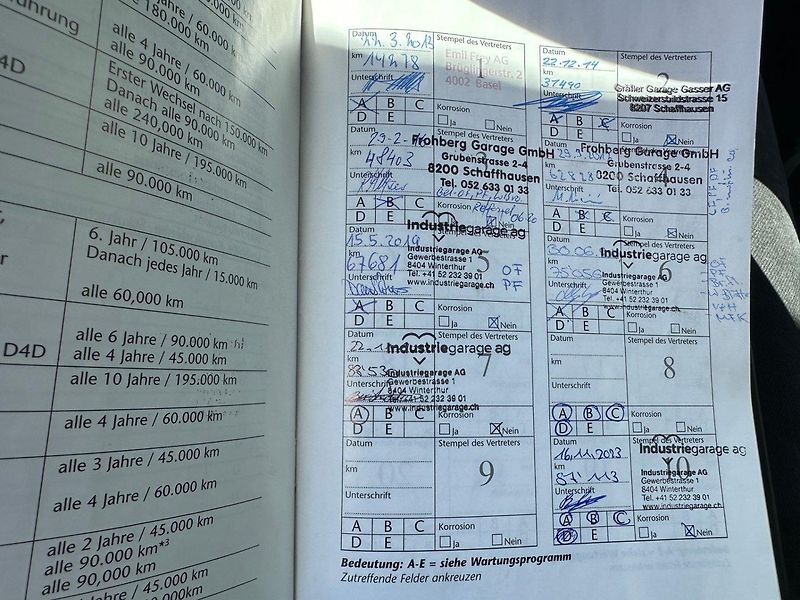 180.000 km
alle 4 Jahre / 60.000 km
alle 90.000 km
Erster Wechsel nach 150.000 km
Danach alle 90.000 km
alle 240,000 km
alle 10 Jahre / 195.000 km
alle 90.000 km
6. Jahr / 105.000 km
Danach jedes Jahr / 15.000 km
alle 60,000 km
D4D
alle 6 Jahre / 90.000 km
alle 4 Jahre / 45.000 km
alle 10 Jahre / 195.000 km
alle 4 Jahre / 60.000 km
alle 3 Jahre / 45.000 km
alle 4 Jahre / 60.000 km
alle 2 Jahre / 45.000 km
alle 90.000 km*3
alle 90,000 km
Jahre / 45.000 km
Datum
Stempel des Vertreters
22.3.2013
km
14278
Unterschrift
1
Emil Frey AG
4002 Basel
A B C
D E
Korrosion
Ja Nein
22.12.14
Stempel des Vertreters
km
31490
Unterschrift
2
Gräfler Garage Gasser AG
Schweizersbildstrasse 15
8207 Schaffhausen
A B C
D E
Korrosion
Ja Nein
km
48403
Unterschrift
Frohberg Garage GmbH
Grubenstrasse 2-4
8200 Schaffhausen
Tel. 052 633 01 33
A B C
D E
Korrosion
Nein
km
62828
Unterschrift
4
Frohberg Garage GmbH
Grubenstrasse 2-4
8200 Schaffhausen
Tel. 052 633 01 33
A B C
D E
Korrosion
Ja Nein
15.5.2019
km
67681
5
Industriegarage ag
Industriegarage AG
Gewerbestrasse 1
8404 Winterthur
Tel. +41 52 232 39 01
www.industriegarage.ch
OF
PF
A B C
D E
Korrosion
Ja Nein
30.06.
km
75056
6
Industriegarage ag
Industriegarage AG
Gewerbestrasse 1
8404 Winterthur
Tel. +41 52 232 39 01
www.industriegarage.ch
A B C
D E
Korrosion
Ja Nein
Datum
Stempel des Vertreters
km
Unterschrift
7
Industriegarage ag
Industriegarage AG
Gewerbestrasse 1
8404 Winterthur
Tel. +41 52 232 39 01
www.industriegarage.ch
A B C
D E
Korrosion
Ja Nein
Datum
Stempel des Vertreters
km
Unterschrift
8
A B C
D E
Korrosion
Ja Nein
Datum
Stempel des Vertreters
km
Unterschrift
9
A B C
D E
Korrosion
Ja Nein
Datum
Stempel des Vertreters
16.11.2023
km
87'113
Unterschrift
10
Industriegarage ag
Industriegarage AG
Gewerbestrasse 1
8404 Winterthur
Tel. +41 52 232 39 01
www.industriegarage.ch
A B C
D E
Korrosion
Ja Nein
Bedeutung: A-E = siehe Wartungsprogramm
Zutreffende Felder ankreuzen